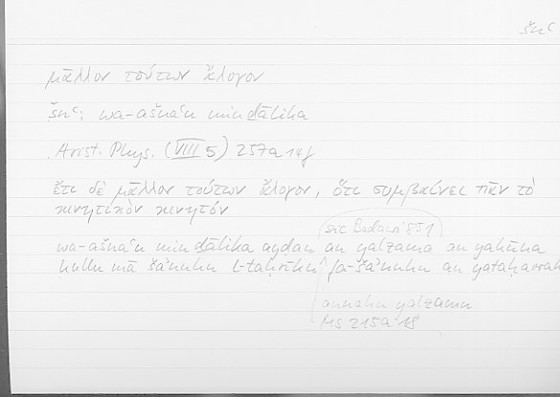 šnʿ
μᾶλλον τούτων ἄλογον
šnʿ: wa-ašnaʿu min ḏālika
Arist. Phys. (VIII 5) 257a 14f
ἔτι δὲ μᾶλλον τούτων ἄλογον, ὅτι συμβαίνει πᾶν τὸ
κινητικὸν κινητόν
sic Badawi 851
wa-ašnaʿu min ḏālika ayḍan an yalzama an yakūna
kullu mā šaʾnuhu t-taḥrīku fa-šaʾnuhu an yataḥarrak
annahu yalzamu
MS 215a 18